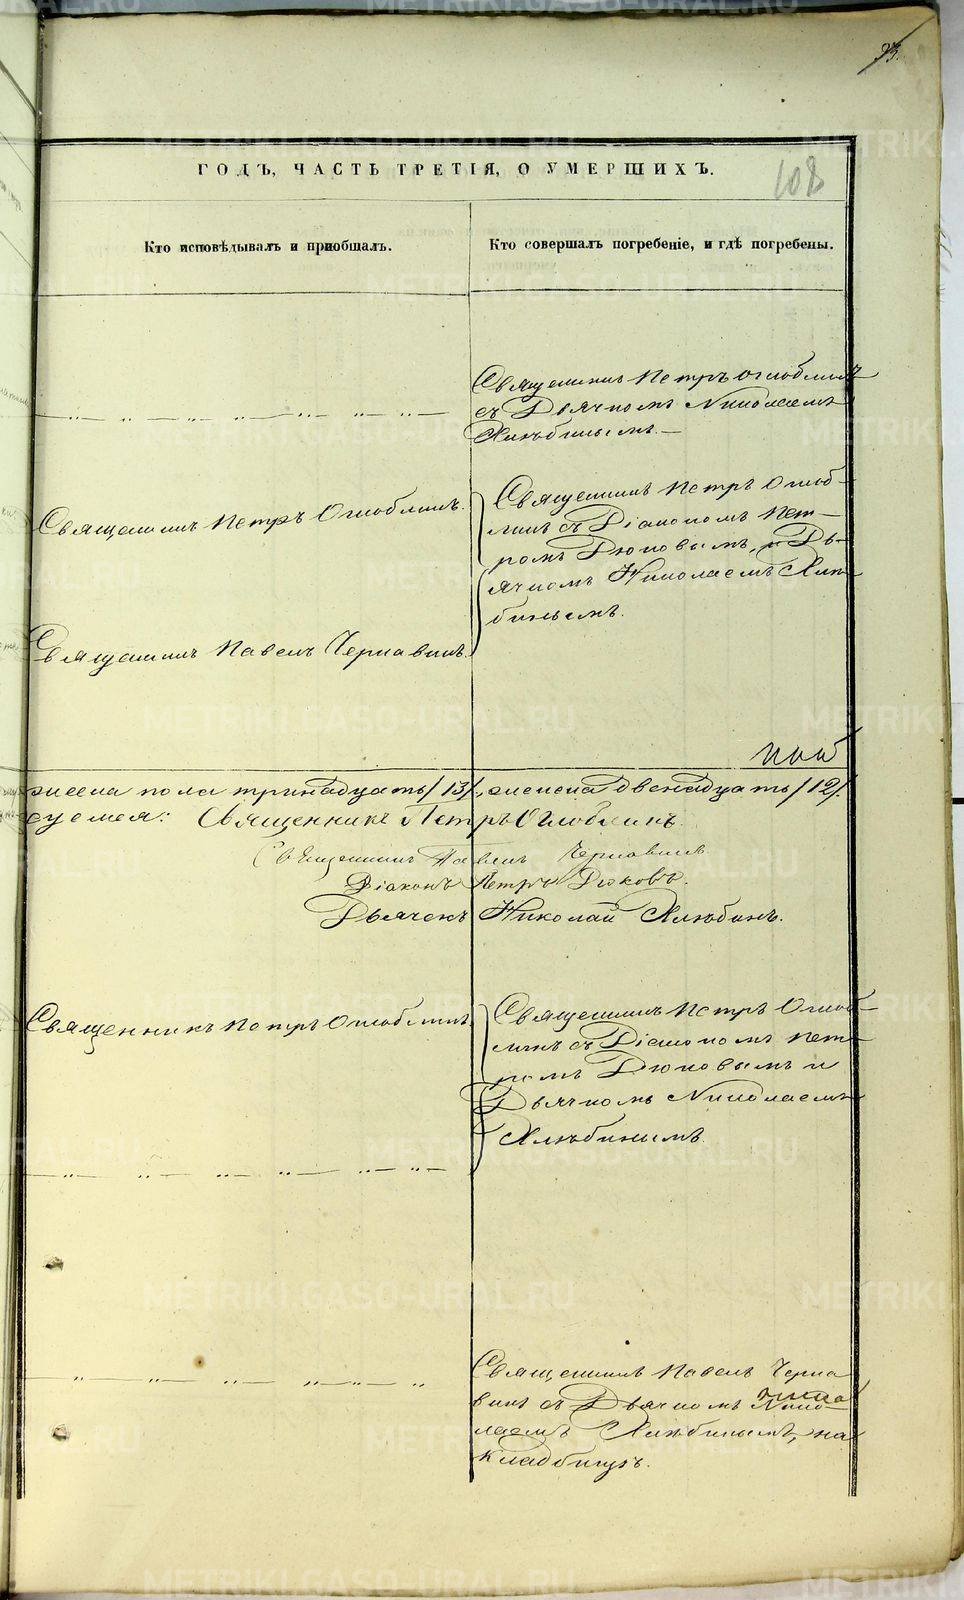 93.
ГОДЪ, ЧАСТЬ ТРЕТІЯ, О УМЕРШИХЪ.
108
Кто исповѣдывалъ и пріобщалъ.
Кто совершалъ погребеніе, и гдѣ погребены.
Священникъ Петръ Оглоблинъ
съ Дьячкомъ Николаемъ
Хлюбинымъ.—
Священникъ Петръ Оглоблинъ.
Священникъ Петръ Оглоб-
линъ съ Діакономъ Пет-
ромъ Дюковымъ, и Дь-
ячкомъ Николаемъ Хлю
бинымъ.
Священникъ Павелъ Чернавинъ.
жеска пола тринадцать /13/, женска двенадцать /12/.
суемся: Священникъ Петръ Оглоблинъ.
Священникъ Павелъ Чернавинъ
Діаконъ Петръ Дюковъ.
Дьячекъ Николай Хлюбинъ.
Священникъ Петръ Оглоблинъ
Священникъ Петръ Оглоб-
линъ съ Діакономъ Пет-
ромъ Дюковымъ и
Дьячкомъ Николаемъ
Хлюбинымъ.
Священникъ Павелъ Черна
винъ съ Дьячкомъ Нико-
лаемъ Хлюбинымъ, на
кладбищѣ.
METRIKI.GASO-URAL.RU